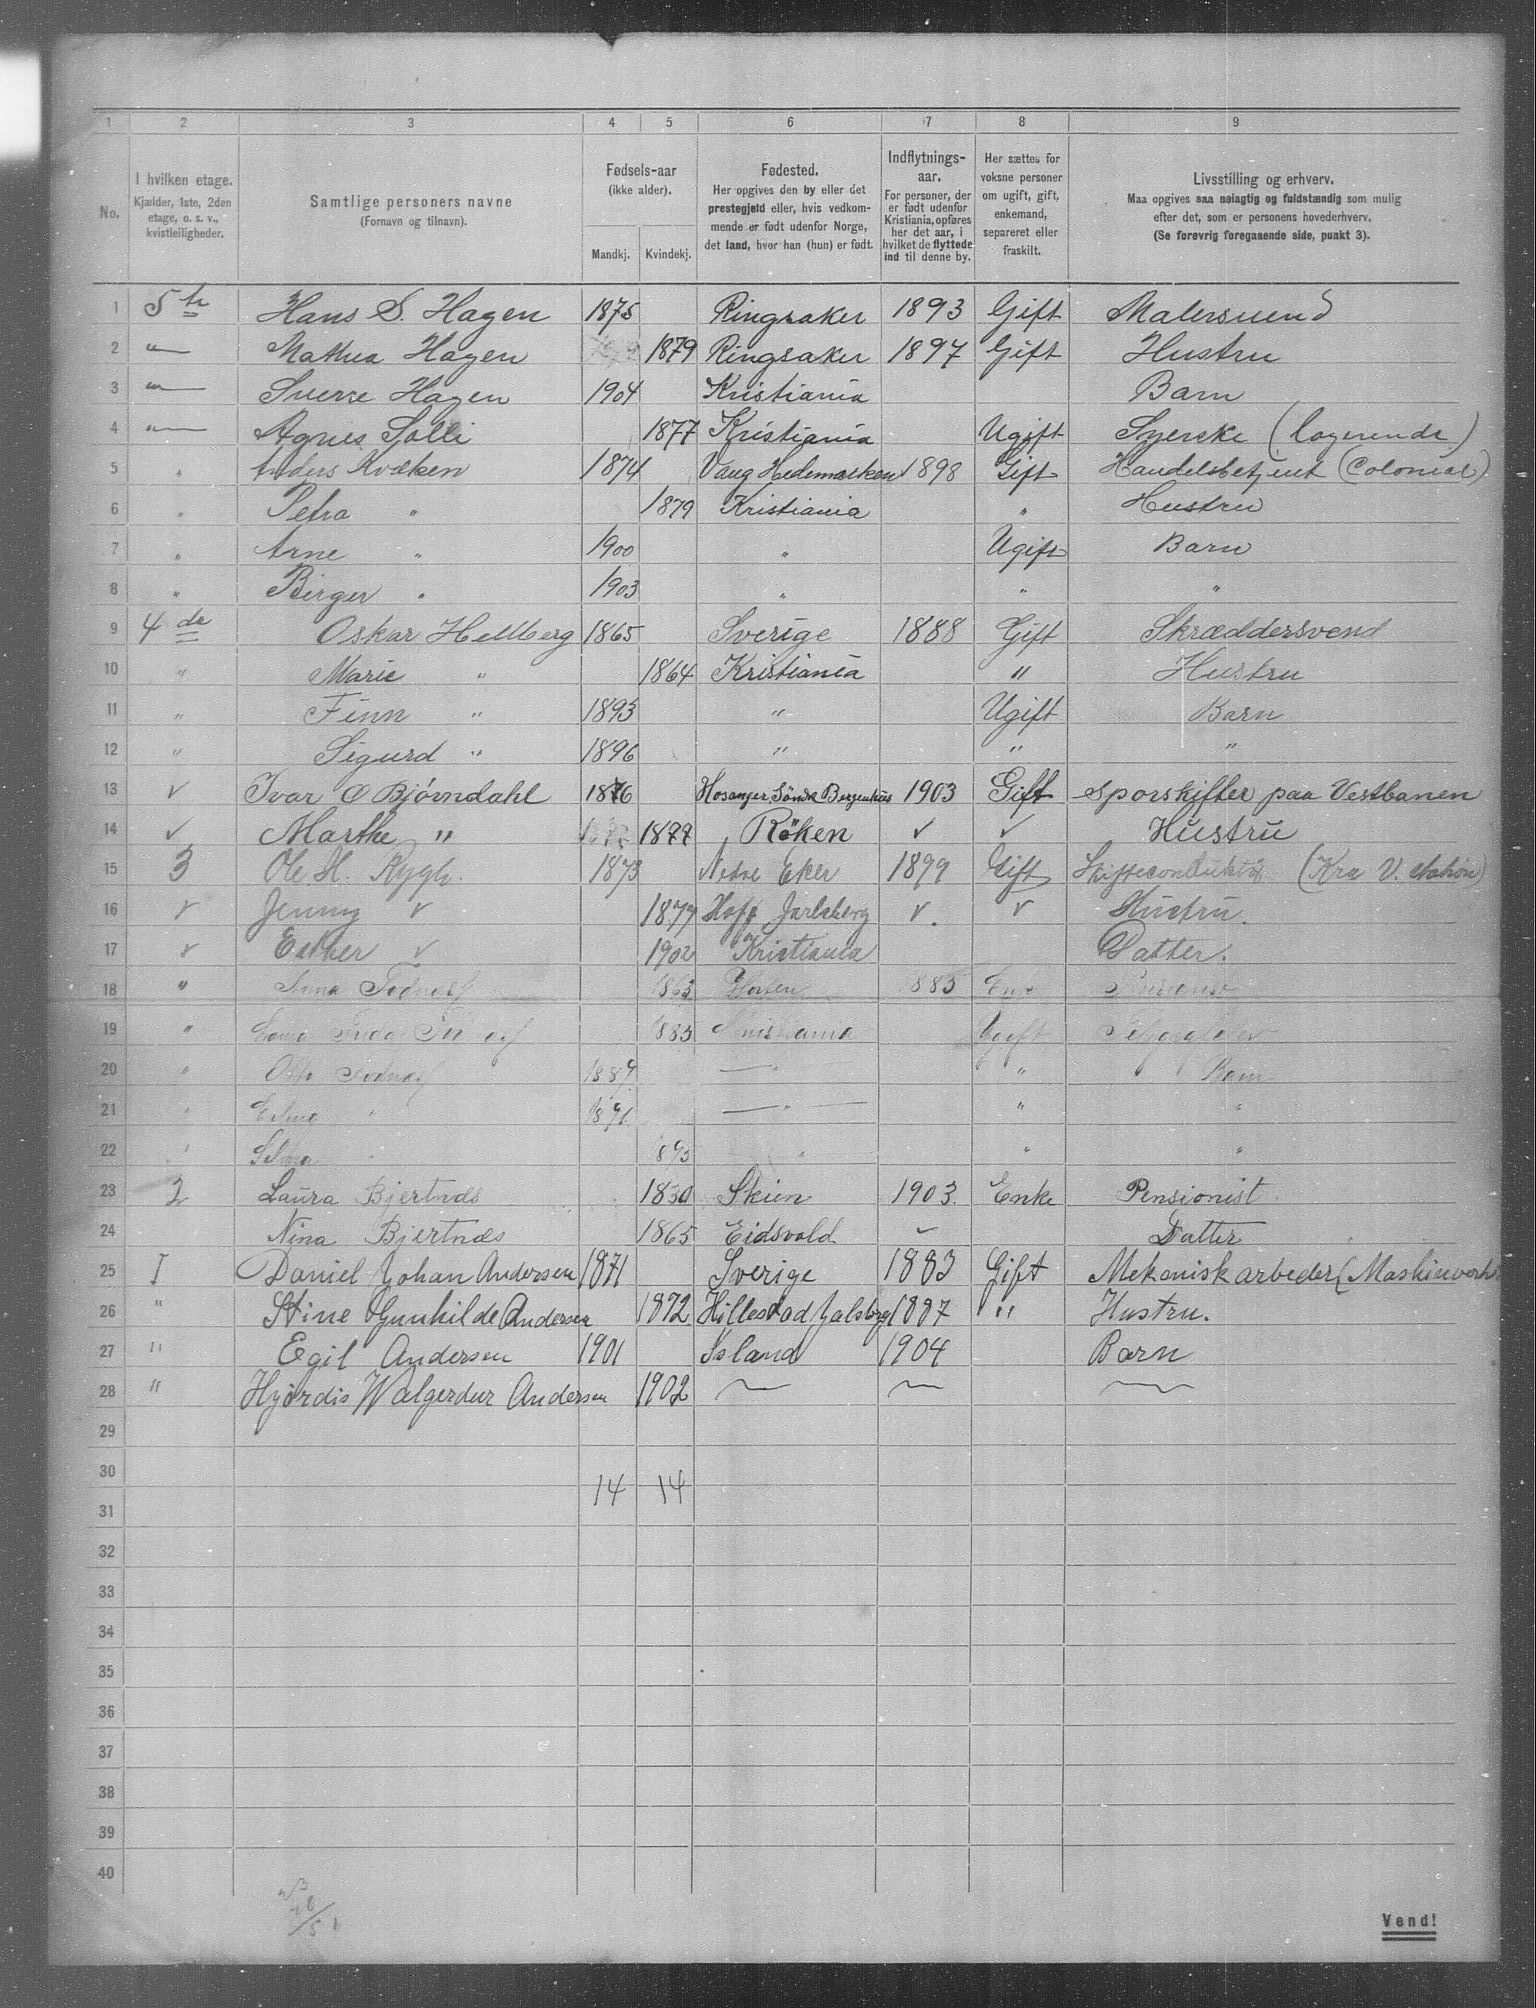 1 2 3 4 5 6 7 8 9
No.
I hvilken etage.
Kjælder, 1ste, 2den etage, o. s. v., kvistleiligheder.
Samtlige personers navne
(Fornavn og tilnavn).
Fødsels-aar
(ikke alder).
Mandkj. Kvindekj.
Fødested.
Her opgives den by eller det prestegjeld eller, hvis vedkommende er født udenfor Norge, det land, hvor han (hun) er født.
Indflytnings-aar.
For personer, der er født udenfor Kristiania, opføres her det aar, i hvilket de flyttede ind til denne by.
Her sættes for voksne personer om ugift, gift, enkemand, separeret eller fraskilt.
Livsstilling og erhverv.
Maa opgives saa nøiagtig og fuldstændig som mulig efter det, som er personens hovederhverv.
(Se forøvrig foregaaende side, punkt 3).
1 5te Hans S. Hagen 1875 Ringsaker 1893 Gift Malersvend
2 " Hagen 1879 Ringsaker 1897 Gift Hustru
3 " Sverre Hagen 1904 Kristiania Barn
4 " Agnes Solli 1877 Kristiania Ugift Syerske (logerende)
5 " Anders Kvæken 1874 Vang Hedemarken 1898 Gift Handelsbetjent (Colonial)
6 " Petra " 1879 Kristiania " Hustru
7 " Arne " 1900 " Ugift Barn
8 " Birger " 1903 " " "
9 4de Oskar Hellberg 1865 Sverige 1888 Gift Skræddersvend
10 " Marie " 1864 Kristiania " Hustru
11 " Finn " 1893 " Ugift Barn
12 " Sigurd " 1896 " " "
13 ✓ Ivar O Bjørndahl 1876 Hosanger, Søndre Bergenhus 1903 Gift Sporskifter paa Vestbanen
14 ✓ Marthe " 1877 Røken ✓ ✓ Hustru
15 3 Ole H. Rygh. 1873 Nedre Eker 1899 Gift Skifteconduktør (Kra V. station)
16 ✓ Jenny ✓ 1877 Hoff Jarlsberg ✓. ✓ Hustru.
17 ✓ Esther ✓ 1902 Kristiania Datter.
18 " Anna 1863 Horten 1885 Enke
19 " 1883 Kristiania Ugift
20 " Otto 1889 " " Barn
21 " " 1891 " " "
22 " Selma " 1893 " " "
23 2 Laura Bjertnæs 1830 Skien 1903. Enke Pensionist.
24 Nina Bjertnæs 1865 Eidsvold. " Datter
25 I Daniel Johan Andersen 1871 Sverige 1883 Gift Mekanisk arbeder (Maskinverks
26 " Stine Gunhilde Andersen 1872 Hillestad Jalsberg 1887 " Hustru.
27 " Egil Andersen 1901 Island 1904 Barn
28 " Hjørdis Walgerdur Andersen 1902 " " "
29
30
14 14
31
32
33
34
35
36
37
38
39
40
Vend!